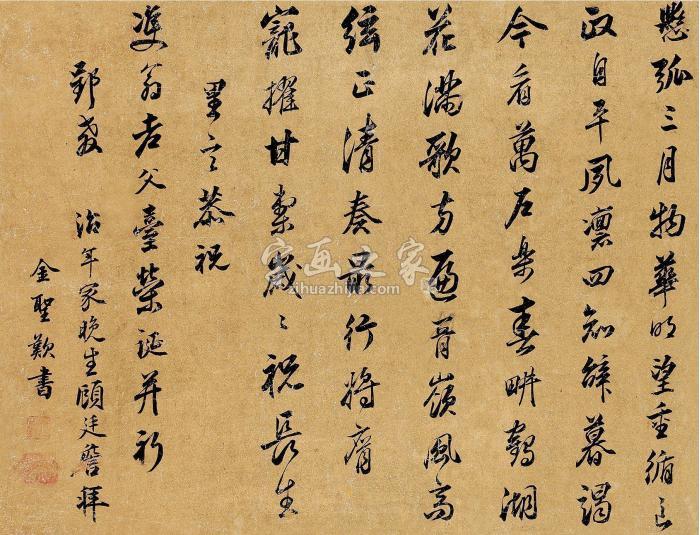 懸弧三月物華明望重循良
政自平夙凜四知辭暮謁
今看萬石樂春畊鶴湖
花滿歌方遍胥嶺風高
絃正清奏最行將膺
寵擢甘棠歲々祝長生
里言恭祝
翁老父臺榮誕并祈
郢教 治年家晚生顧廷拜
金聖歎書
字画之家
zihuazhijia.com